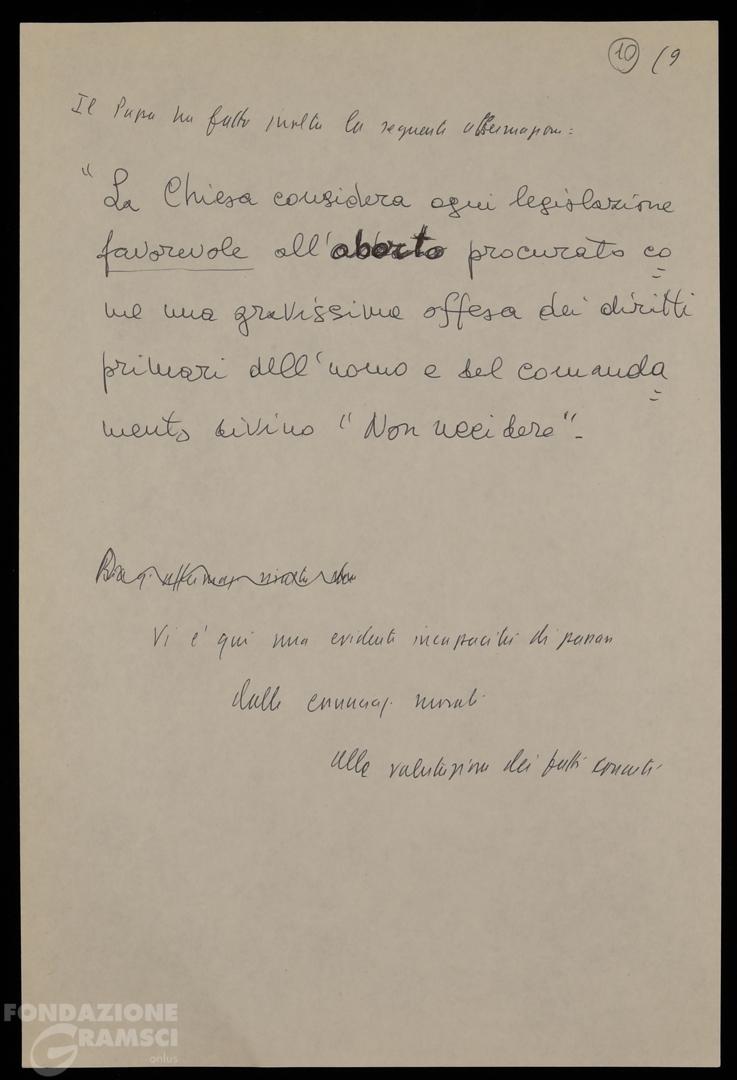 10 (9
Il Papa ha fatto inoltre la seguente affermazione:
"La Chiesa considera ogni legislazione
favorevole all'aborto procurato co
me una gravissima offesa dei diritti
primari dell'uomo e del comanda
mento divino "Non uccidere".
Vi è qui una evidente incapacità di passare
dalle enunciaz. morali
alla valutazione dei fatti concreti
FONDAZIONE
GRAMSCI
onlus